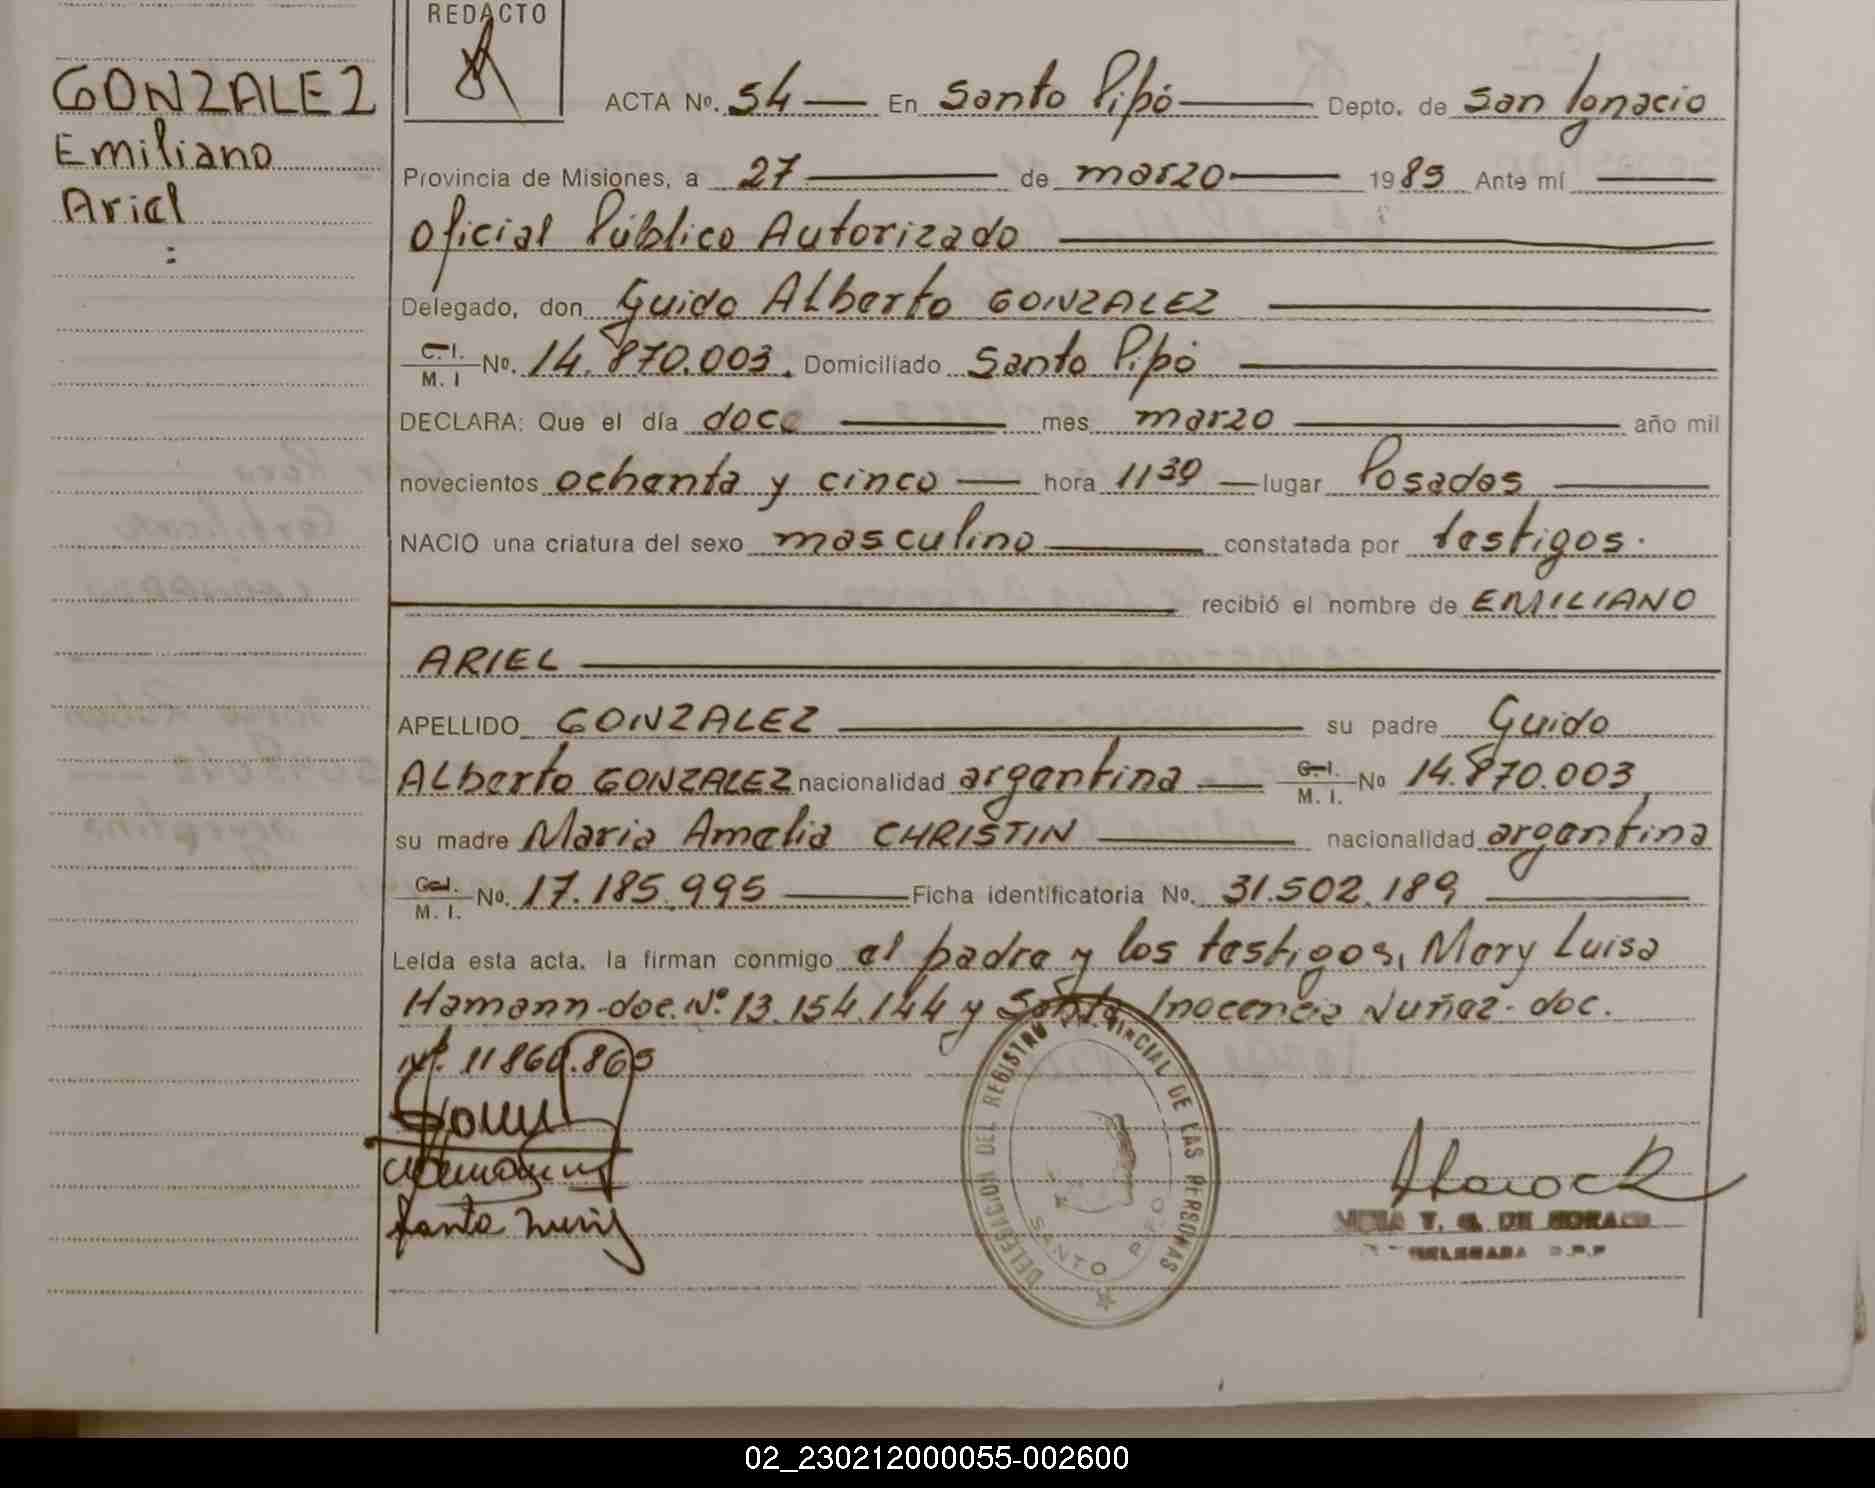 REDACTO
GONZALEZ
Emiliano
Ariel
:
ACTA Nº. 54 — En Santo Pipó — Depto. de San Ignacio
Provincia de Misiones, a 27 — de marzo — 1985 Ante mí —
Oficial Público Autorizado —
Delegado, don Guido Alberto GONZALEZ —
C.I. / M. I Nº. 14.870.003. Domiciliado Santo Pipó —
DECLARA: Que el día doce — mes marzo — año mil
novecientos ochenta y cinco — hora 11 30 — lugar Posadas —
NACIO una criatura del sexo masculino — constatada por testigos.
— recibió el nombre de EMILIANO
ARIEL —
APELLIDO GONZALEZ — su padre Guido
Alberto GONZALEZ nacionalidad argentina — C.I. / M. I. Nº 14.870.003
su madre Maria Amelia CHRISTIN — nacionalidad argentina
C.I. / M. I. Nº. 17.185.995 — Ficha identificatoria Nº. 31.502.189 —
Leída esta acta, la firman conmigo el padre y los testigos, Mary Luisa
Hamann-doc. Nº. 13.154.144 y Santa Inocencia Nuñez- doc.
Nº. 11860.865
Santa Nuñez
DELEGACION DEL REGISTRO PROVINCIAL DE LAS PERSONAS
SANTO PIPO
DELEGADA
02_230212000055-002600